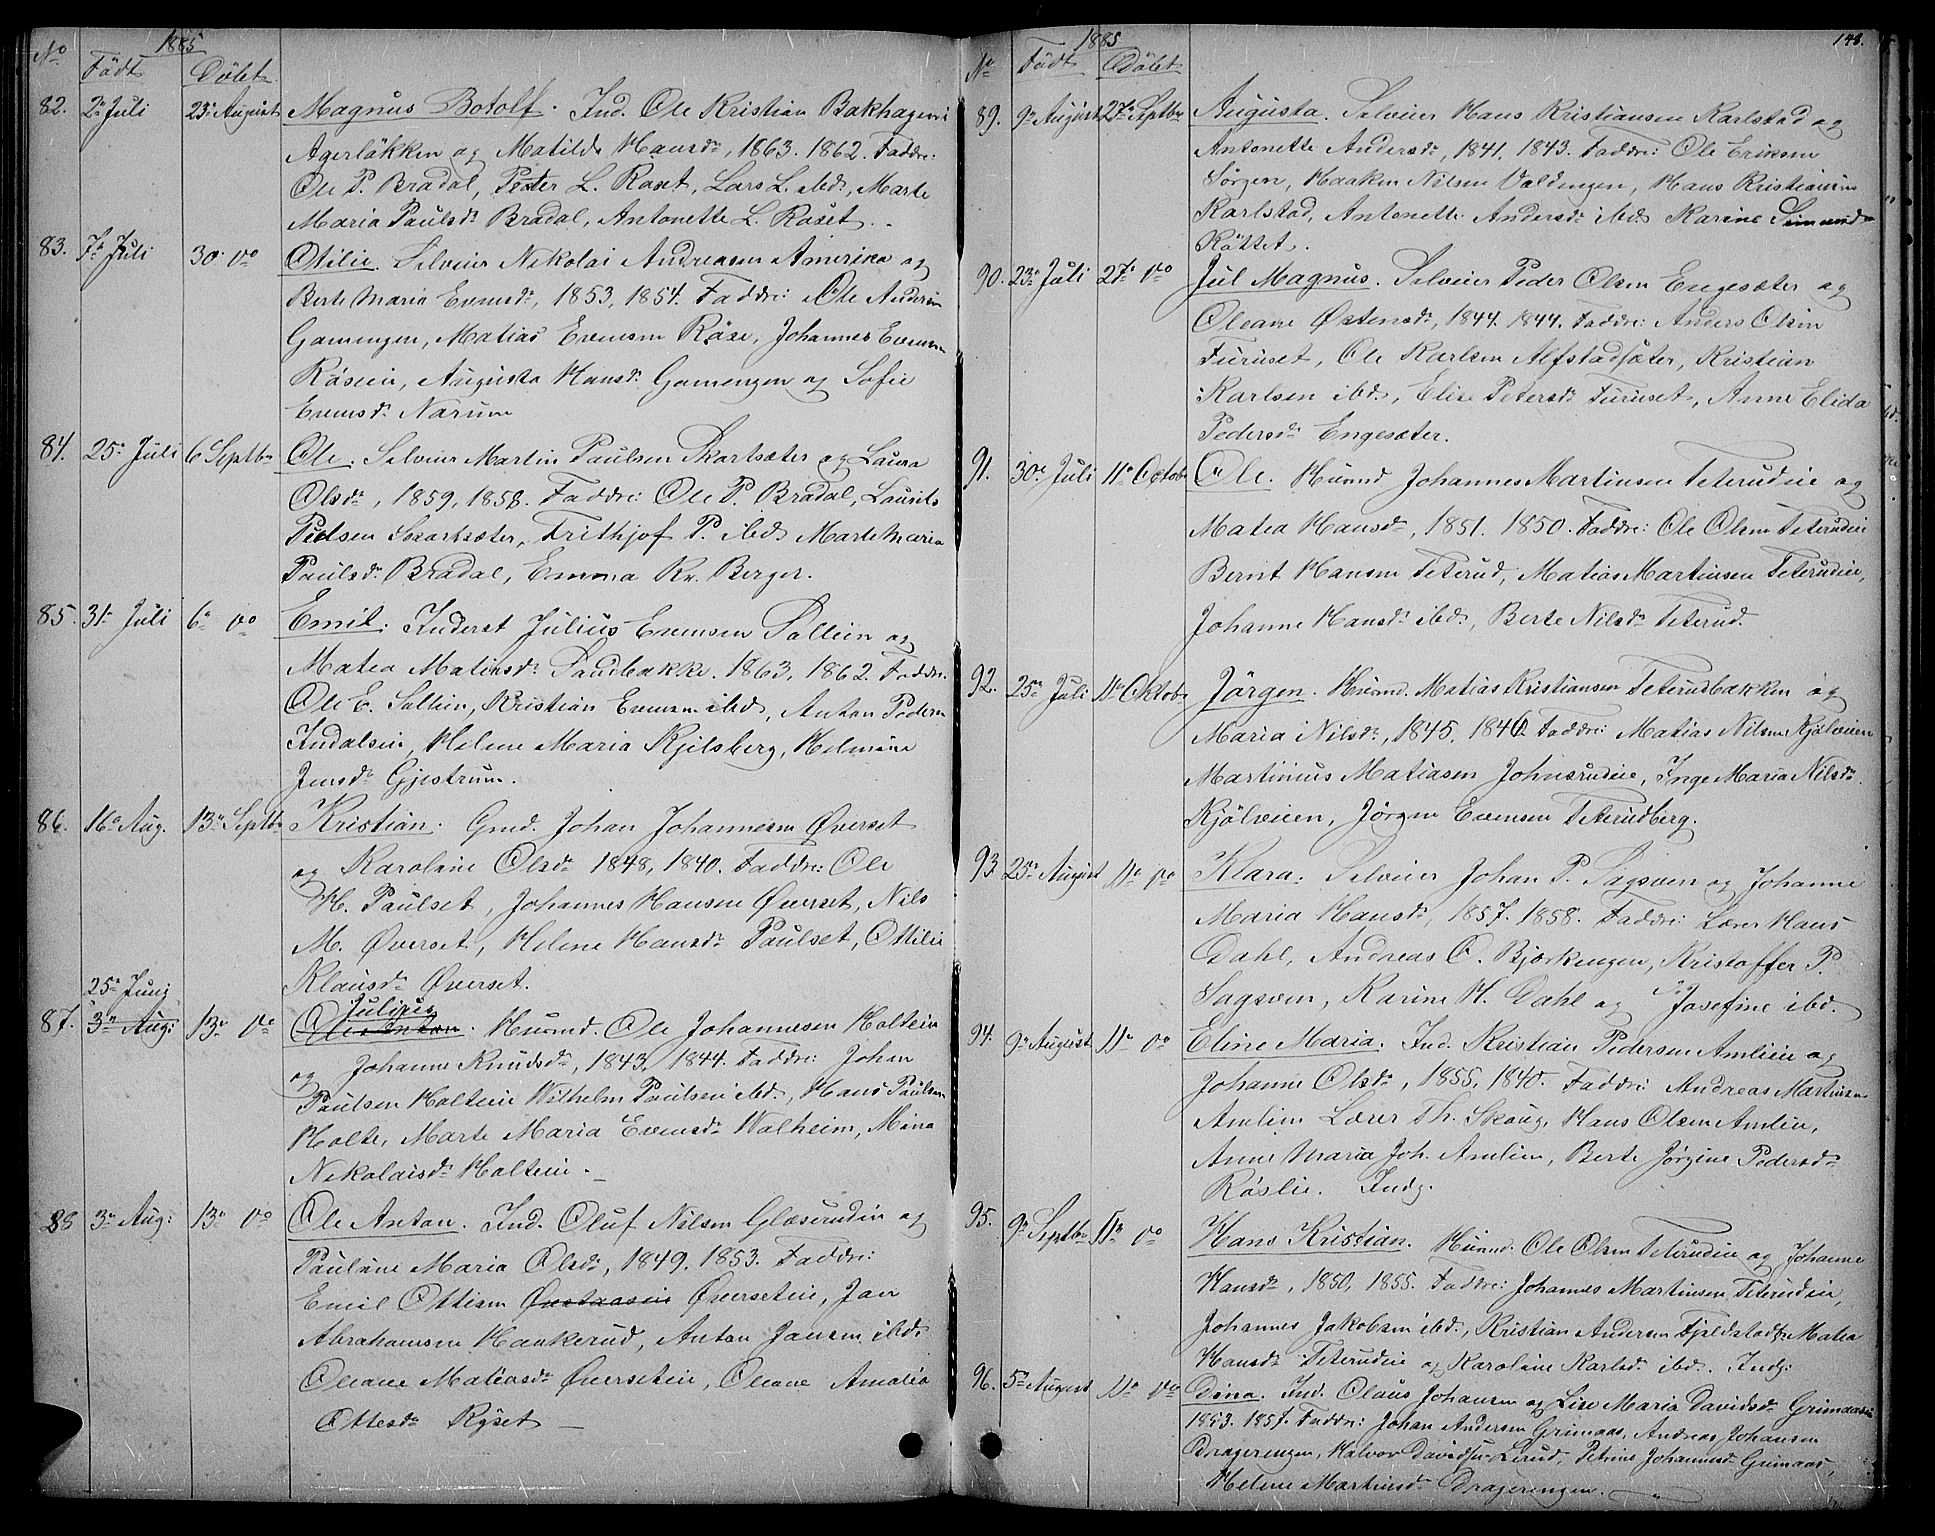 1885
No Födt Döbt
82. 2n Juli 23n August Magnus Botolf. Ind. Ole Kristian Bakhagen i
Agerløkken og Matilde Hansdr, 1863. 1862. Faddre:
Ole P. Bradal, Peter L. Roset, Lars L. ibd, Marte
Maria Paulsdr Bradal, Antonette L. Roset.
83. 7n Juli 30 do Otilie. Selveier Nikolai Andreasen Amerika og
Berte Maria Evensdr, 1853, 1854. Faddre: Ole Andersen
Gamengen, Matias Evensen Röse, Johannes Evensen
Röseie, Augusta Hansdr Gamengen og Sofie
Evensdr Narum
84. 25n Juli 6 Septbr Ole. Selveier Martin Paulsen Skartsæter og Laura
Olsdr, 1859, 1858. Faddre: Ole P. Bradal, Laurits
Paulsen Skartsæter, Frithjof P. ibd, Marte Maria
Paulsdr Bradal, Emma Kr. Berger.
85. 31n Juli 6n do Emil. Inderst Julius Evensen Sollien og
Matea Matiasdr Sandbakke. 1863, 1862. Faddre:
Ole E. Sollien, Kristian Evensen ibd, Anton Pedersen
Indalseie, Helene Maria Kjelsberg, Helmine
Jensdr Gjestrum.
86. 16n Aug. 13n Septbr Kristian. Gmd. Johan Johannesen Øverset
og Karoline Olsdr 1848, 1840. Faddre: Ole
H. Paulset, Johannes Hansen Øverset, Nils
M. Øverset, Helene Hansdr Paulset, Ottilie
Klausdr Øverset.
25n Junij Julius
87. 3n Aug: 13n do Ole Anton. Husmd. Ole Johannesen Holteie
og Johanne Knudsdr, 1843, 1844. Faddre: Johan
Paulsen Holteie Wilhelm Paulsen ibd, Hans Paulsen
Holte, Marte Maria Evensdr Walheim, Mina
Nikolaisdr Holteie.
88 3n Aug: 13n do Ole Anton. Ind. Oluf Nilsen Glæserudeie og
Pauline Maria Olsdr, 1849. 1853. Faddre:
Emil Ottisen Øverseteie, Jan
Abrahamsen Haakerud, Anton Jansen ibd
Oleane Matiasdr Øverseteie, Oleane Amalia
Ottesdr Ryset
1885 148.
No Födt Döbt
89. 9n August 27n Septbr Augusta. Selveier Hans Kristiansen Karlstad og
Antonette Andersdr, 1841. 1843. Faddre: Ole Eriksen
Sörgen, Haaken Nilsen Valdengen, Hans Kristiansen
Karlstad, Antonette Andersdr ibd Karine
Röttet.
90. 23n Juli 27n do Jul Magnus. Selveier Peder Olsen Engesæter og
Oleane Østensdr, 1844. 1844. Faddre: Anders Olsen
Furuset, Ole Karlsen Alfstadsæter, Kristian
Karlsen ibd, Elise Petersdr Furuset, Anne Elida
Pedersdr Engesæter.
91. 30n Juli 11n Octobr Ole. Husmd Johannes Martinsen Teterudeie og
Matea Hansdr, 1851. 1850. Faddre: Ole Olsen Teterudeie
Bernt Hansen Teterud, Matias Martinsen Teterudeie,
Johanne Hansdr ibd, Berte Nilsdr Teterud.
92. 25n Juli 11n Oktobr Jörgen. Husmd. Matias Kristiansen Teterudbakken og
Maria Nilsdr, 1845, 1846. Faddre: Matias Nilsen Kjölveien
Martinius Matiasen Johnsrudeie, Inge Maria Nilsdr
Kjölveien, Jörgen Evensen Teterudberg.
93 25n August 11n do Klara. Selveier Johan P. Sagsveen og Johanne
Maria Hansdr, 1857. 1858. Faddre: Lærer Hans
Dahl, Andreas O. Bjørkengen, Kristoffer P.
Sagsveen, Karine H. Dahl og Josefine ibd.
94. 9n August 11n do Eline Maria. Ind. Kristian Pedersen Amlien og
Johanne Olsdr, 1855, 1840. Faddre: Andreas Martinsen
Amlien Lærer Th. Skoug, Hans Olsen Amlien,
Anne Maria Joh. Amlien, Berte Jörgine Pedersdr
Röslie. Indg.
95. 9n Septbr 11n do Hans Kristian. Husmd. Ole Olsen Teterudeie og Johanne
Hansdr, 1850, 1855. Faddre: Johannes Martinsen Teterudeie,
Johannes Jakobsen ibd, Kristian Andersen Fjeldstad, Matea
Hansdr Teterudeie og Karoline Karlsdr ibd. Indg:
96. 5n August 11n do Dina. Ind. Olaus Johansen og Lise Maria Davidsdr Grimaaseie
1853. 1857. Faddre: Johan Andersen Grimaas, Andreas Johansen
Dragerengen, Halvor Davidsen Lerud, Petrine Johannesdr Grimaas,
Helene Martinsdr Dragerengen.